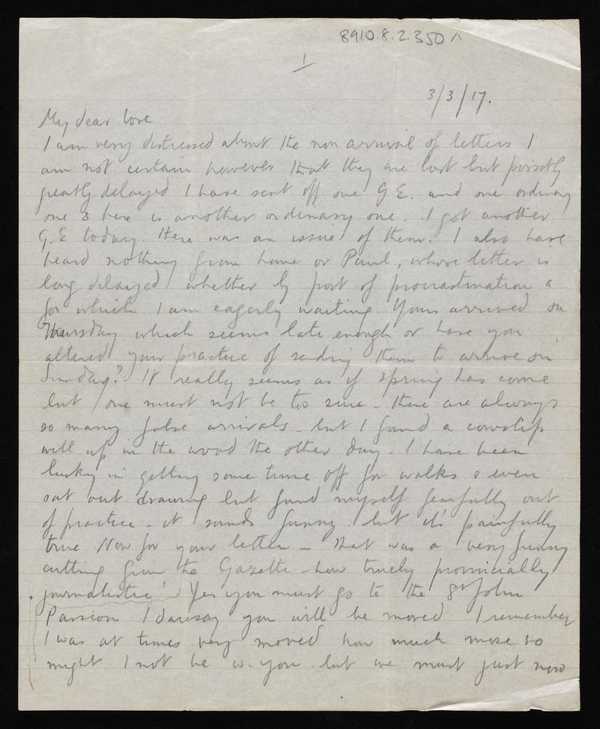 8910.8.2.350 ^
1
3/3/17.
My dear love
I am very distressed about the non arrival of letters I
am not certain however that they are lost but possibly
greatly delayed I have sent off one G.E. and one ordinary
one & here is another ordinary one. I got another
G.E today. There was an issue of them. I also have
heard nothing from home or Paul, whose letter is
long delayed whether by post or procrastination &
for which I am eagerly waiting. Yours arrived on
Thursday which seems late enough or have you
altered your practice of sending them to arrive on
Sunday? It really seems as if spring has come
but one must not be too sure - there are always
so many false arrivals - but I found a cowslip
well up in the wood the other day. I have been
lucky in getting some time off for walks & even
sat out drawing but found myself fearfully out
of practice - it sounds funny but it's painfully
true Now for your letter - That was a very funny
cutting from the Gazette - how truely provincially
journalistic! Yes you must go to the St John
Passion I daresay you will be moved I remember
I was at times very moved how much more so
might I not be w. you but we must just now